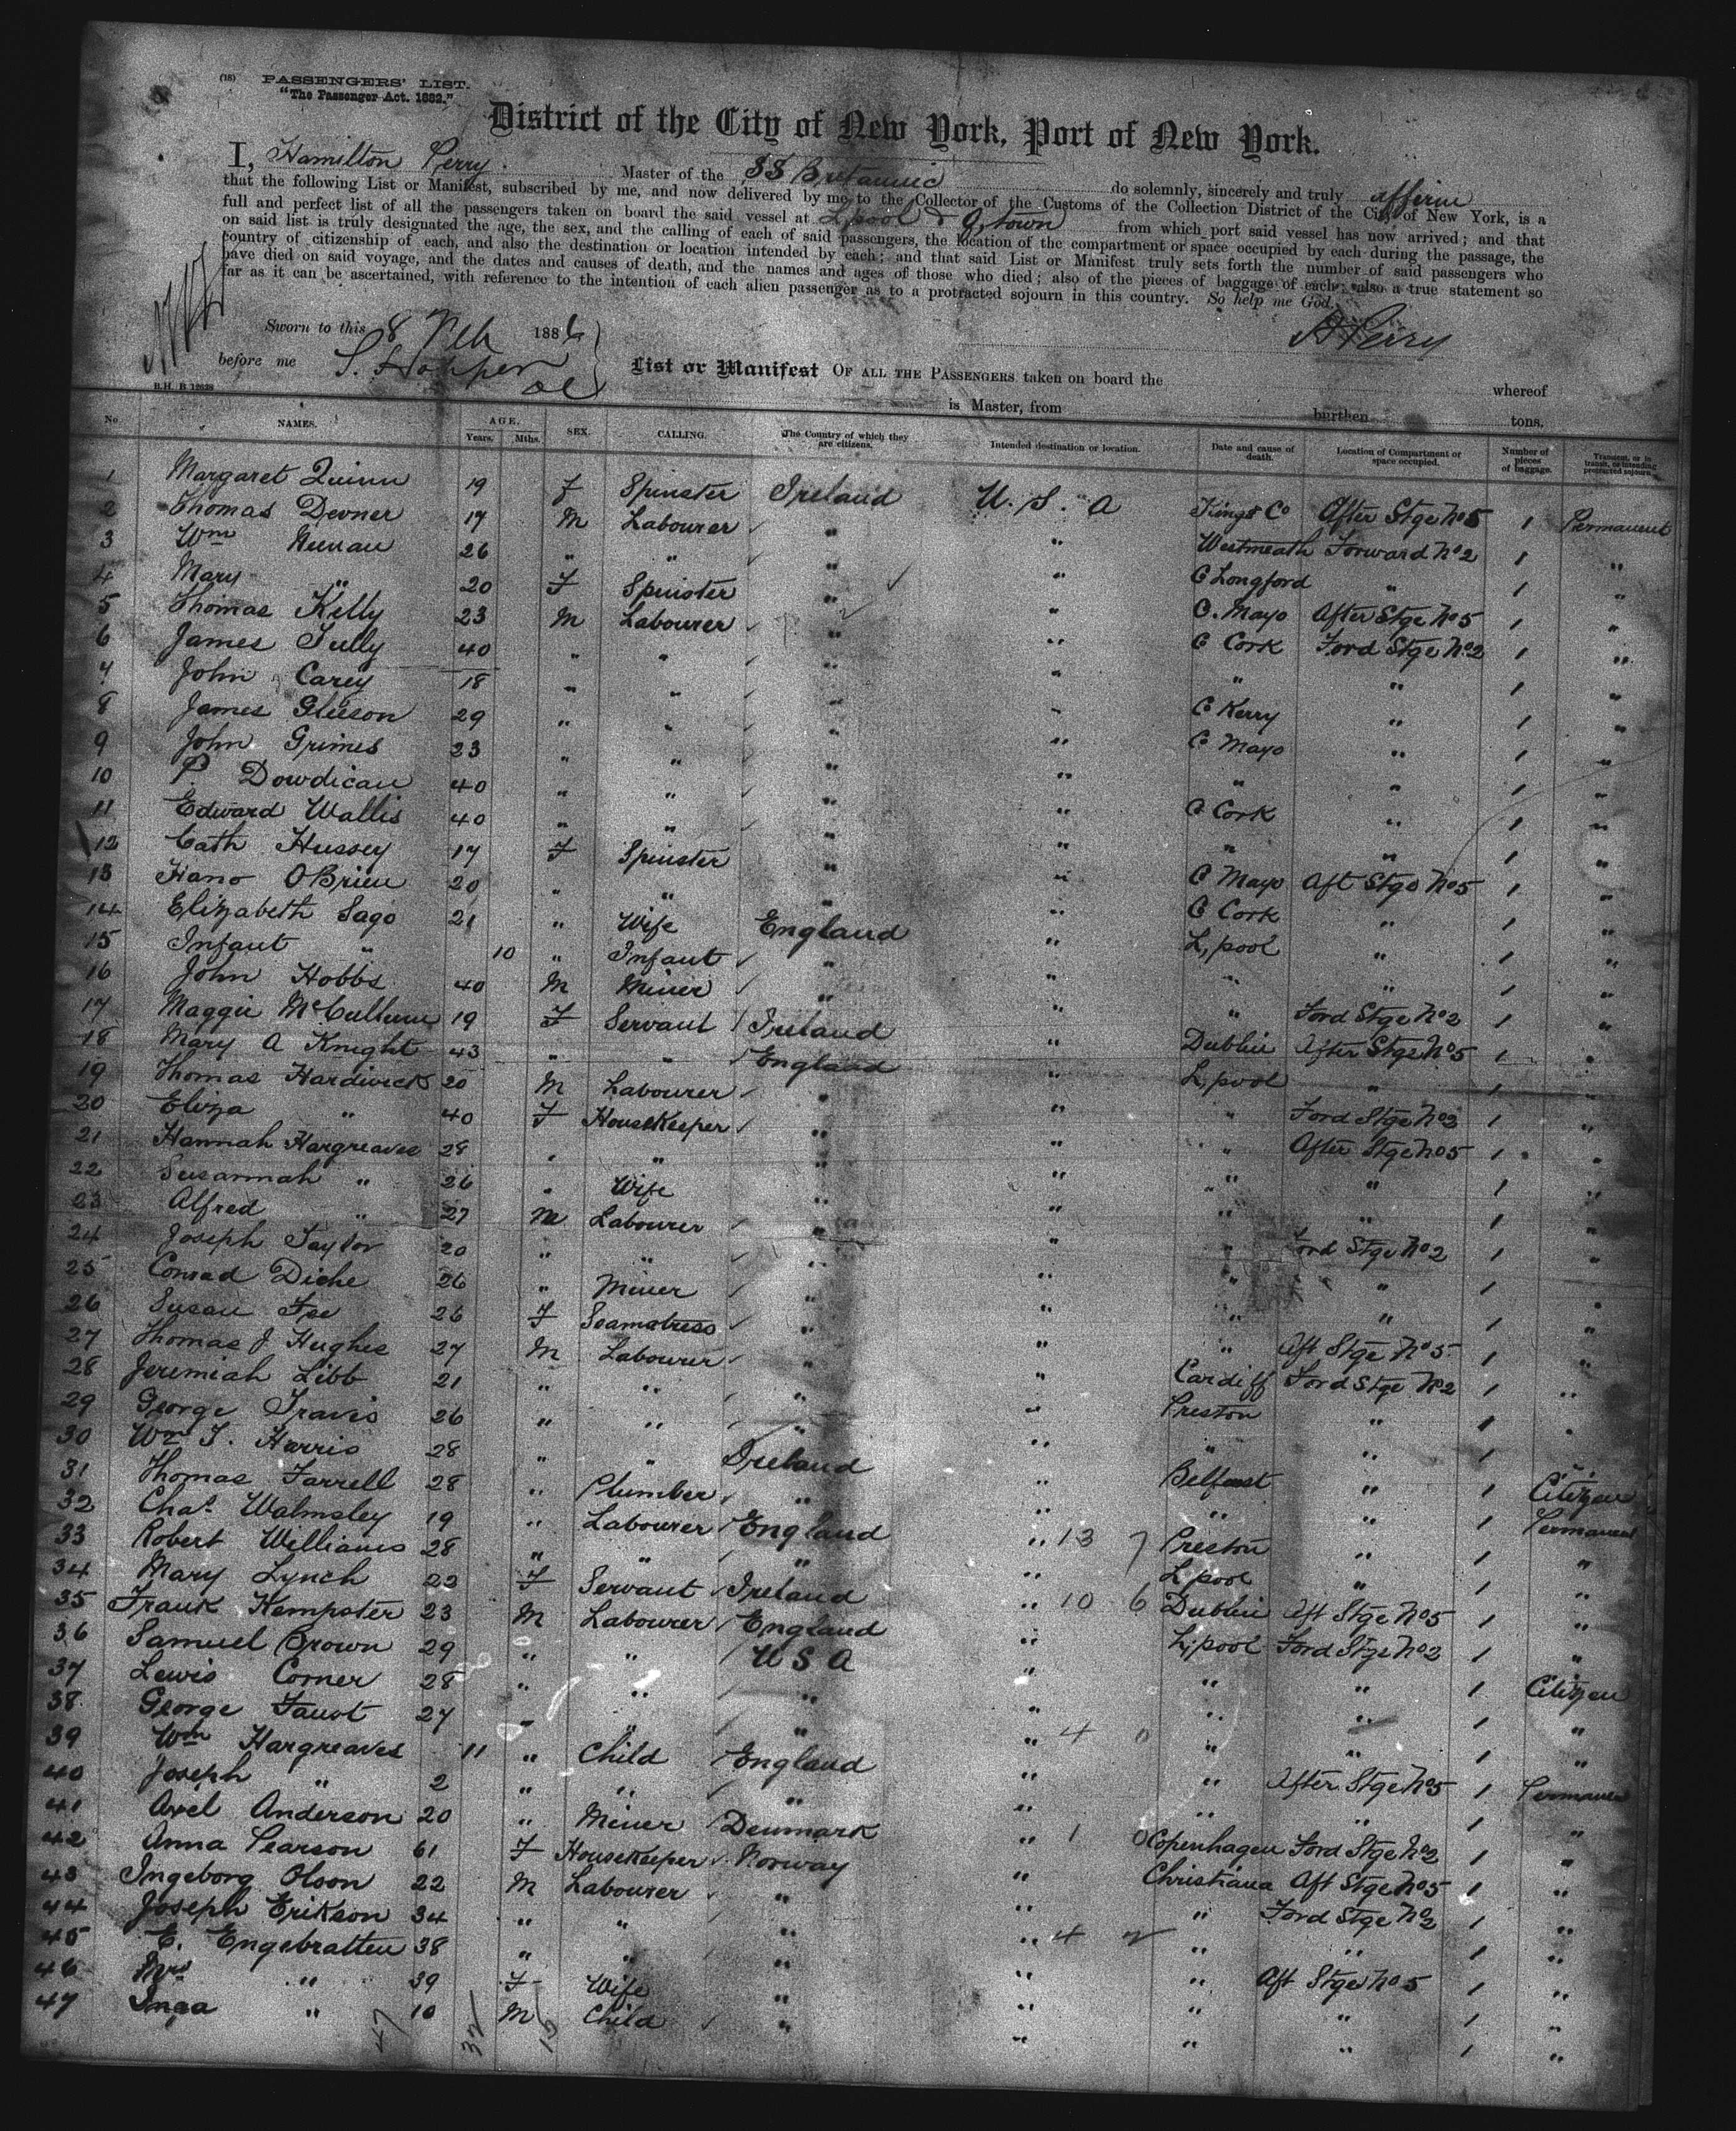 (18) PASSENGERS' LIST.
"The Passenger Act. 1882."
District of the City of New York, Port of New York.
I, Hamilton Perry. Master of the SS Britannic do solemnly, sincerely and truly affirm
that the following List or Manifest, subscribed by me, and now delivered by me to the Collector of the Customs of the Collection District of the City of New York, is a
full and perfect list of all the passengers taken on board the said vessel at L'pool & Q,town from which port said vessel has now arrived; and that
on said list is truly designated the age, the sex, and the calling of each of said passengers, the location of the compartment or space occupied by each during the passage, the
country of citizenship of each, and also the destination or location intended by each; and that said List or Manifest truly sets forth the number of said passengers who
have died on said voyage, and the dates and causes of death, and the names and ages of those who died; also of the pieces of baggage of each; also a true statement so
far as it can be ascertained, with reference to the intention of each alien passenger as to a protracted sojourn in this country. So help me God.
Sworn to this 8 Feb 1886
H Perry
before me S. Hopper
List or Manifest OF ALL THE PASSENGERS taken on board the whereof
B.H. B 12628
is Master, from burthen tons.
No NAMES. AGE. Years. Mths. SEX. CALLING. The Country of which they are citizens. Intended destination or location. Date and cause of death. Location of Compartment or space occupied. Number of pieces of baggage. Transient, or in transit, or intending protracted sojourn.
1 Margaret Quinn 19 f Spinster Ireland U. S. A Kings Co After Stge No 5 1 Permanent
2 Thomas Devner 17 M Labourer " " Westmeath Forward No 2 1 "
3 Wm Keenan 26 " " " " C Longford " 1 "
4 Mary " 20 F Spinster " " C. Mayo After Stge No 5 1 "
5 Thomas Kelly 23 M Labourer " " C Cork Ford Stge No 2 1 "
6 James Tully 40 " " " " " " 1 "
7 John Carey 18 " " " " C Kerry " 1 "
8 James Gleeson 29 " " " " C Mayo " 1 "
9 John Grimes 23 " " " " " " 1 "
10 P. Dowdican 40 " " " " C Cork " 1 "
11 Edward Wallis 40 " " " " " " 1 "
12 Cath Hussey 17 F Spinster " " C Mayo Aft Stge No 5 1 "
13 Hano OBrien 20 " " " " C Cork " 1 "
14 Elizabeth Sago 21 " Wife England " L,pool " 1 "
15 Infant " 10 " Infant " " " " 1 "
16 John Hobbs 40 M Miner " " " Ford Stge No 2 1 "
17 Maggie McCullum 19 F Servant Ireland " Dublin After Stge No 5 1 "
18 Mary A Knight 43 " " England " L,pool " 1 "
19 Thomas Hardwick 20 M Labourer " " " Ford Stge No 2 1 "
20 Eliza " 40 F HouseKeeper " " " After Stge No 5 1 "
21 Hannah Hargreaves 28 " " " " " " 1 "
22 Susannah " 26 " Wife " " " " 1 "
23 Alfred " 27 M Labourer " " " Ford Stge No 2 1 "
24 Joseph Taylor 20 " " " " " " 1 "
25 Conrad Diehe 26 " Miner " " " " 1 "
26 Susan 26 F Seamstress " " " Aft Stge No 5 1 "
27 Thomas J Hughes 27 M Labourer " " Cardiff Ford Stge No 2 1 "
28 Jeremiah Libb 21 " " " " Preston " 1 "
29 George Travis 26 " " " " " " 1 "
30 Wm T. Harris 28 " " Ireland " Belfast " 1 Citizen
31 Thomas Farrell 28 " Plumber " " " " 1 Permanent
32 Chas Walmsley 19 " Labourer England " 13 7 Preston " 1 "
33 Robert Williams 28 " " " " L,pool " 1 "
34 Mary Lynch 22 F Servant Ireland " 10 6 Dublin Aft Stge No 5 1 "
35 Frank Kempster 23 M Labourer England " L,pool Ford Stge No 2 1 "
36 Samuel Brown 29 " " U S A " " " 1 Citizen
37 Lewis Corner 28 " " " " " " 1 "
38 George Faust 27 " " " " 4 0 " " 1 "
39 Wm Hargreaves 11 " Child England " " After Stge No 5 1 Permanent
40 Joseph " 2 " " " " " " 1 "
41 Axel Anderson 20 " Miner Denmark " 1 0 Copenhagen Ford Stge No 2 1 "
42 Anna Pearson 61 F Housekeeper Norway " Christiana Aft Stge No 5 1 "
43 Ingeborg Olson 22 M Labourer " " " Ford Stge No 2 1 "
44 Joseph Erikson 34 " " " " 4 2 " " 1 "
45 E. Engebratten 38 " " " " " Aft Stge No 5 1 "
46 Mrs " 39 F Wife " " " " 1 "
47 Inga " 10 M Child " " " " 1 "
47 32 15